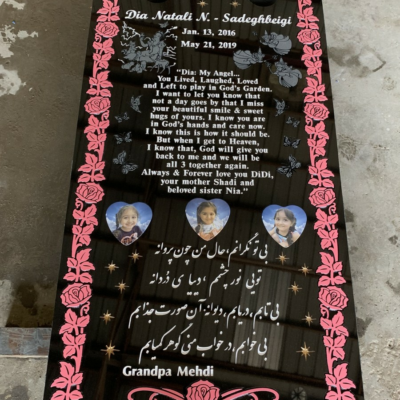 Dia Natali N. - Sadeghbeigi
Jan. 13, 2016
May 21, 2019
"Dia: My Angel...
You Lived, Laughed, Loved
and Left to play in God's Garden.
I want to let you know that
not a day goes by that I miss
your beautiful smile & sweet
hugs of yours. I know you are
in God's hands and care now.
I know this is how it should be.
But when I get to Heaven,
I know that, God will give you
back to me and we will be
all 3 together again.
Always & Forever love you DiDi,
your mother Shadi and
beloved sister Nia."
بی تو نگرانم، حال من چون پروانه
تویی نور چشمم، دیبای دُردانه
بی تابم، دریابم، دیوانه آن صورت جذابم
بی خوابم، در خواب منی گوهر کمیابم
Grandpa Mehdi